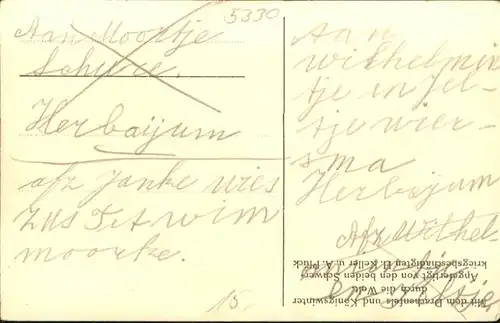 5330
Aan Moortje
Schure.
Herbaijum
afz Janke wies
zus Tet wim
moorke.
15.
Aan
wilhelmin
tje in Jel-
tje wier-
sma
Herbaijum
Afz Wilhel
Mit dem Drachenfels und Königswinter
durch die Welt
Angefertigt von den beiden Schwer-
kriegsbeschädigten H. Keller u. A. Flück